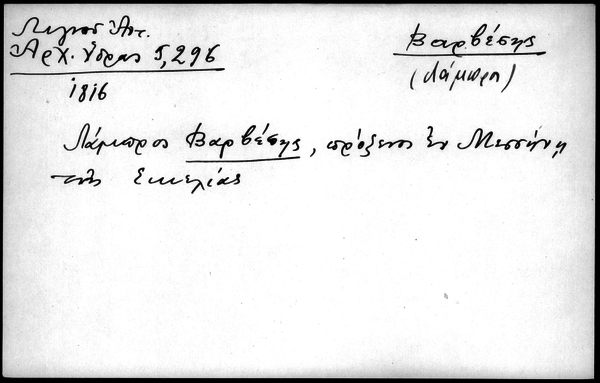 Λιγνοῦ Ἀντ.
Ἀρχ. Ὕδρας 5, 296
1816
Βαρβέσης
(Λάμπρο)
Λάμπρος Βαρβέσης, πρόξενος ἐν Μεσσήνῃ
τῆς Σικελίας